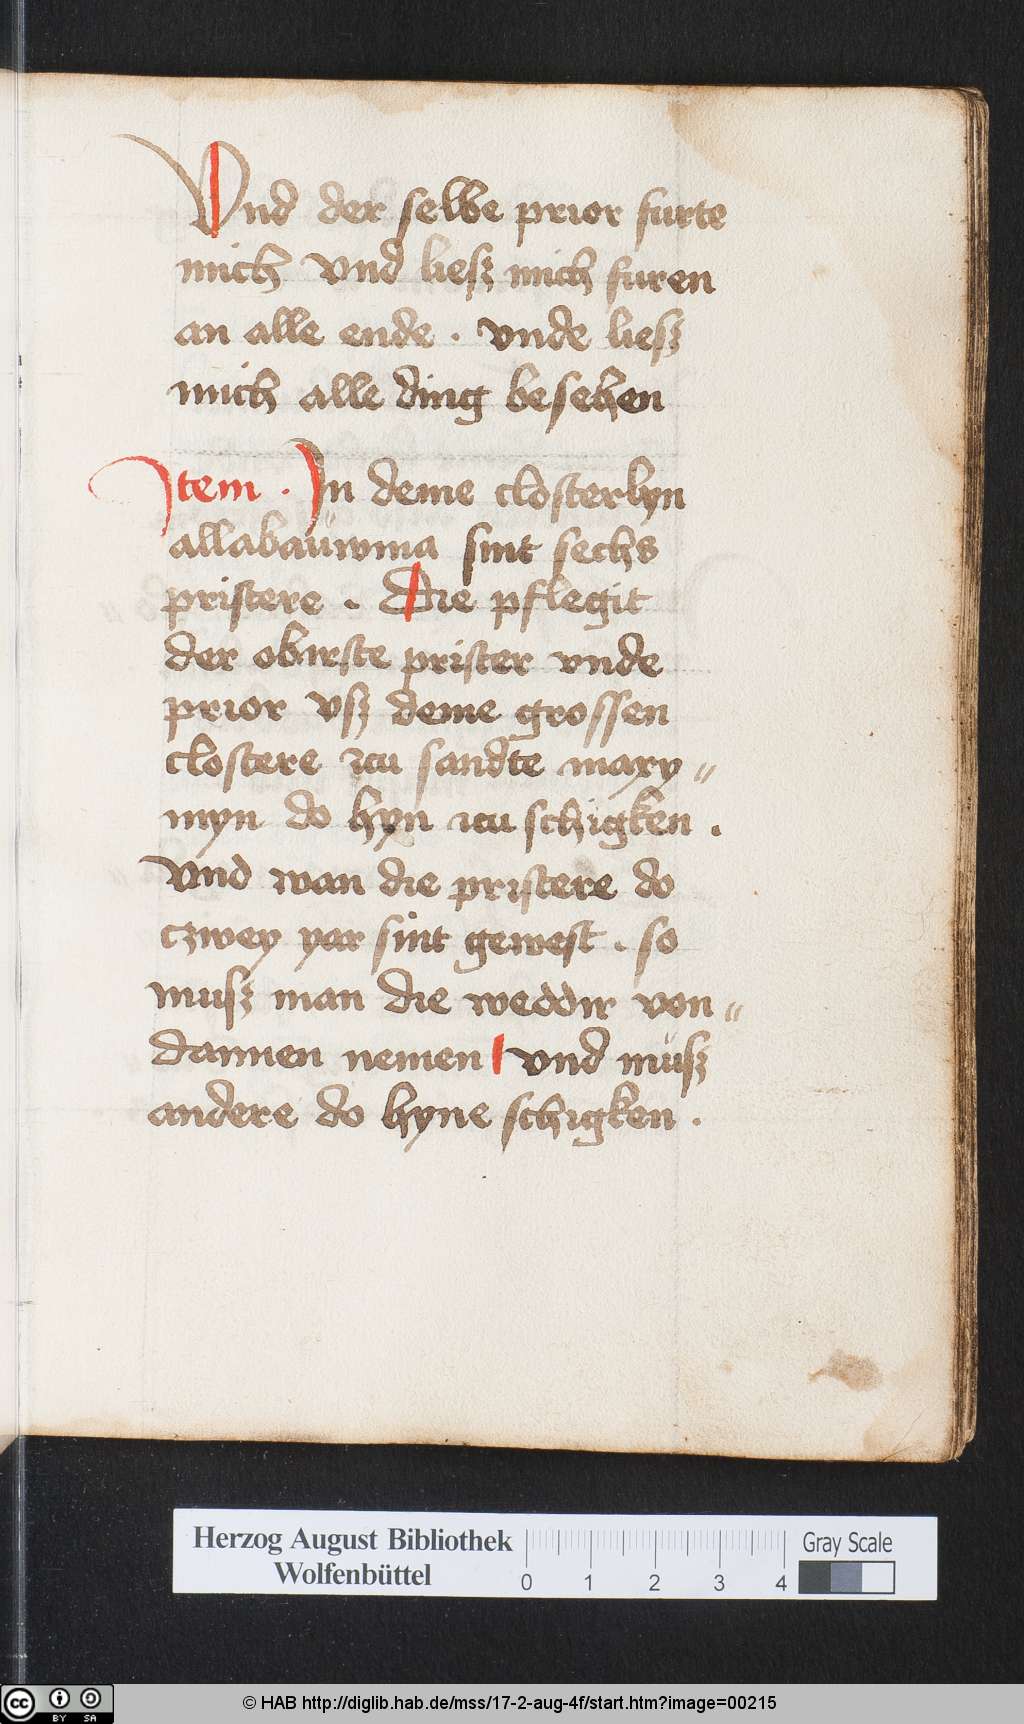 Vnd der selbe prior furte
mich vnd liesz mich furen
an alle ende . vnde liesz
mich alle ding besehen
Item . In deme closterlyn
allabaüwma sint sechs
pristere . Die pflegit
der obirste prister vnde
prior vsz deme grossen
clostere zcu sandte maxy〃
myn do hyn zcu schigken .
Vnd wan die pristere do
czwey yar sint gewest . so
musz man die weddir von〃
dannen nemen vnd müsz
andere do hyne schigken .
Herzog August Bibliothek
Wolfenbüttel
0 1 2 3 4
Gray Scale
cc BY SA
© HAB http://diglib.hab.de/mss/17-2-aug-4f/start.htm?image=00215